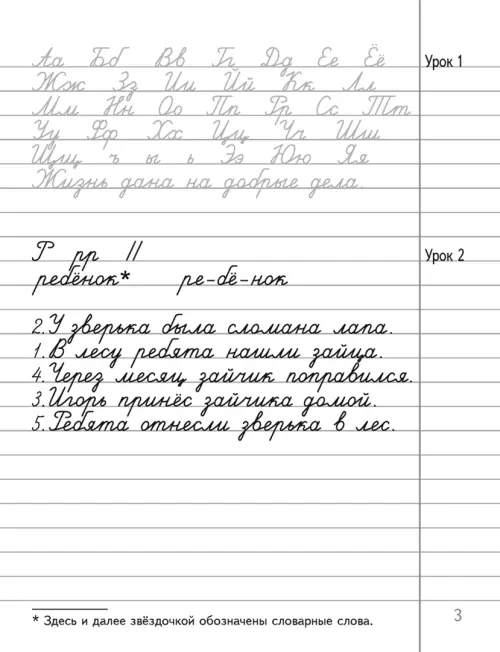 Аа Бб Вв Гг Дд Ее Ёё Урок 1
Жж Зз Ии Йй Кк Лл
Мм Нн Оо Пп Рр Сс Тт
Уу Фф Хх Цц Чч Шш
Щщ ъ ы ь Ээ Юю Яя
Жизнь дана на добрые дела.
Р рр // Урок 2
ребёнок* ре-бё-нок
2. У зверька была сломана лапа.
1. В лесу ребята нашли зайца.
4. Через месяц зайчик поправился.
3. Игорь принёс зайчика домой.
5. Ребята отнесли зверька в лес.
* Здесь и далее звёздочкой обозначены словарные слова.
3